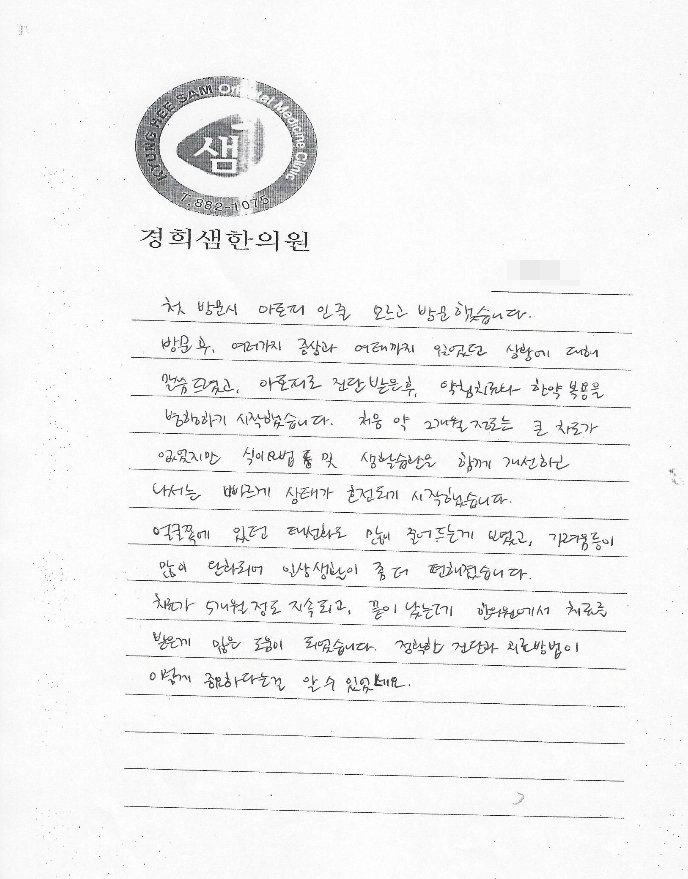 KYUNG HEE SAM Oriental Medicine Clinic
샘
T.882-1075
경희샘한의원
첫 방문시 아토피 인줄 모르고 방문했습니다.
방문후, 여러가지 증상과 여태까지 있었던 상황에 대해
말씀드렸고, 아토피로 진단받은후, 약침치료와 한약 복용을
병행하기 시작했습니다. 처음 약 2개월 정도는 큰 차도가
없었지만 식이요법 및 생활습관을 함께 개선하고
나서는 빠르게 상태가 호전되기 시작했습니다.
얼굴쪽에 있던 태선화도 많이 줄어드는게 보였고, 가려움등이
많이 완화되어 일상생활이 좀 더 편해졌습니다.
치료가 5개월정도 지속되고, 끝이 났는데 한의원에서 치료를
받은게 많은 도움이 되었습니다. 정확한 진단과 치료방법이
이렇게 중요하다는걸 알 수 있었네요.